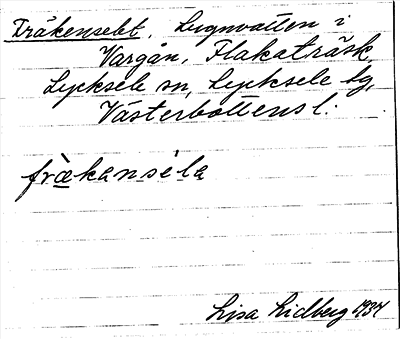 Fräkenselet, Lugnvatten i
Vargån, Flakaträsk,
Lycksele sn, Lycksele lg,
Västerbottens l.
fræ̀kansé̱la̱
Lisa Lidberg 1937